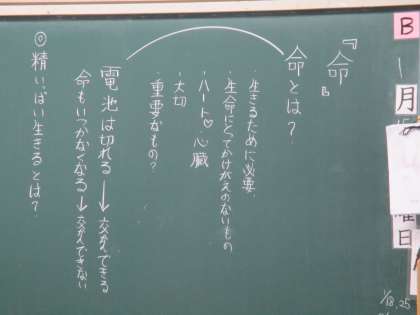 『命』
命とは？
・生きるために必要
・生命にとってかけがえのないもの
・ハート♡心臓
・大切
・重要なもの？
電池は切れる→交かんできる
命もいつかなくなる→交かんできない
◎精いっぱい生きるとは？
B
月
曜
日
1/18.25